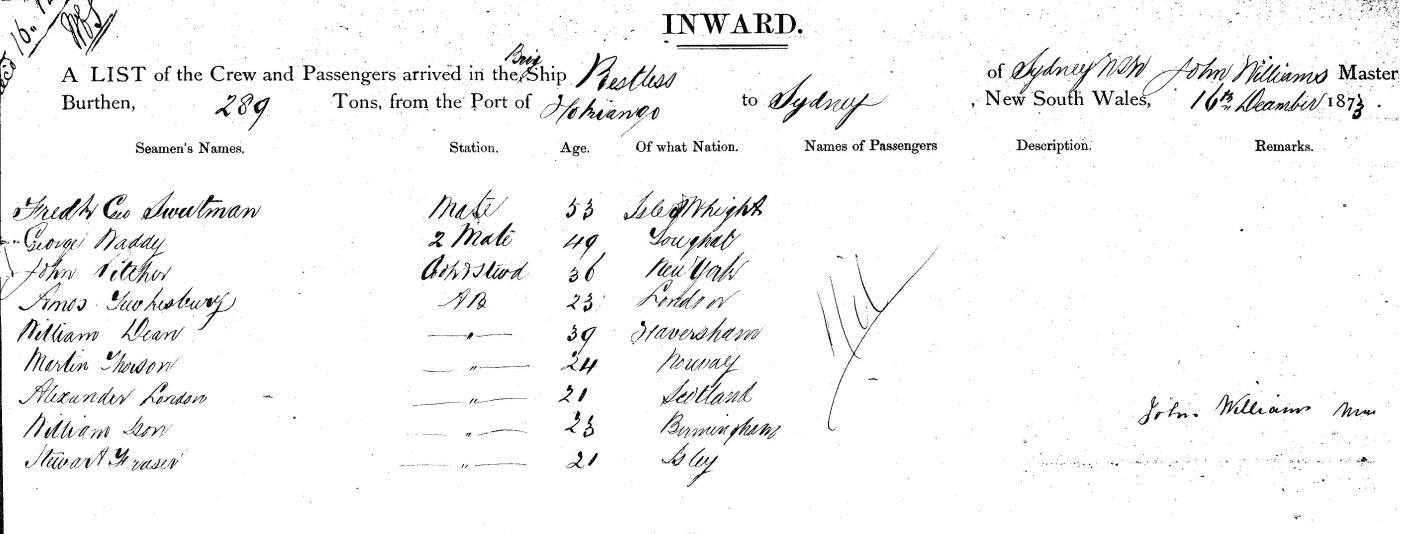 Rec'd 16.12
INWARD.
A LIST of the Crew and Passengers arrived in the Brig Ship Restless of Sydney NSW John Williams Master
Burthen, 289 Tons, from the Port of Hokiango to Sydney , New South Wales, 16th December 1873.
Seamen's Names. Station. Age. Of what Nation. Names of Passengers Description. Remarks.
Fredk Geo Sweetman Mate 53 Isle of Whight
George Waddy 2 Mate 49 Youghal
John Pitcher Ck & Stwd 36 New York
Amos Tewkesbury AB 23 London
William Dean —"— 39 Haversham
Martin Thorson —"— 24 Norway
Alexander London —"— 21 Scotland
William Ison —"— 23 Birmingham
Stewart Fraser —"— 21 Isley
Nil
John Williams